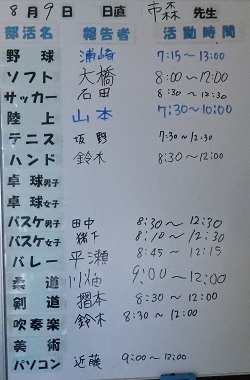 8月9日 日直 市森 先生
部活名 報告者 活動時間
野球 浦崎 7:15〜13:00
ソフト 大橋 8:00〜12:00
サッカー 石田 8:30〜12:30
陸上 山本 7:30〜10:00
テニス 坂野 7:30〜12:30
ハンド 鈴木 8:30〜12:00
卓球男子
卓球女子
バスケ男子 田中 8:30〜12:30
バスケ女子 猪下 8:10〜12:30
バレー 平瀬 8:45〜12:15
柔道 9:00〜12:00
剣道 摺本 8:30〜12:00
吹奏楽 鈴木 8:30〜12:00
美術
パソコン 近藤 9:00〜12:00